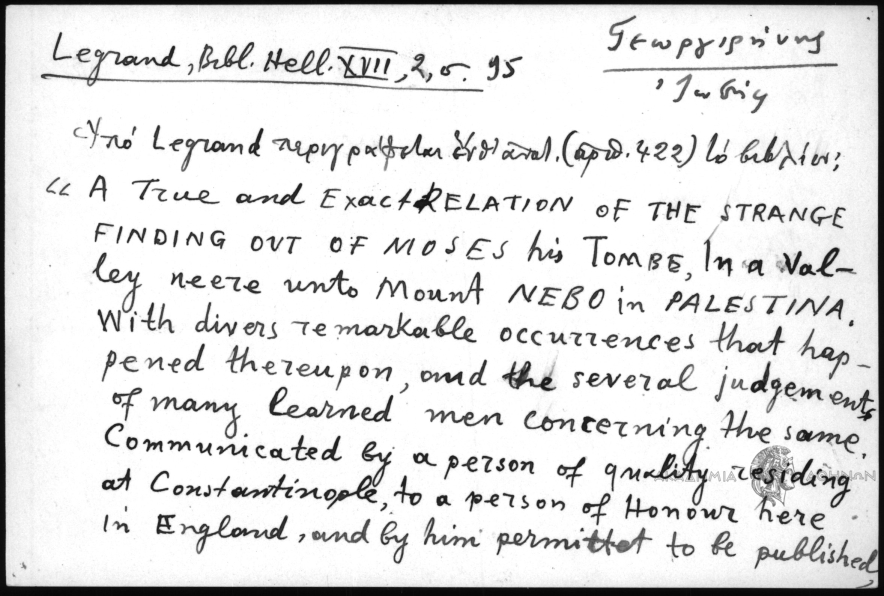 Legrand, Bibl. Hell. XVII, 2, σ. 95
Γεωργιρήνης
Ἰωσὴφ
Ὑπό Legrand περιγράφεται (ἀριθ. 422) τό βιβλίον:
“ A True and Exact RELATION OF THE STRANGE
FINDING OUT OF MOSES his TOMBE, In a Val-
ley neere unto Mount NEBO in PALESTINA.
With divers remarkable occurrences that hap-
pened thereupon, and the several judgements
of many learned men concerning the same.
Communicated by a person of quality residing
at Constantinople, to a person of Honour here
in England, and by him permittet to be published,
ΑΚΑΔΗΜΙΑ ΑΘΗΝΩΝ